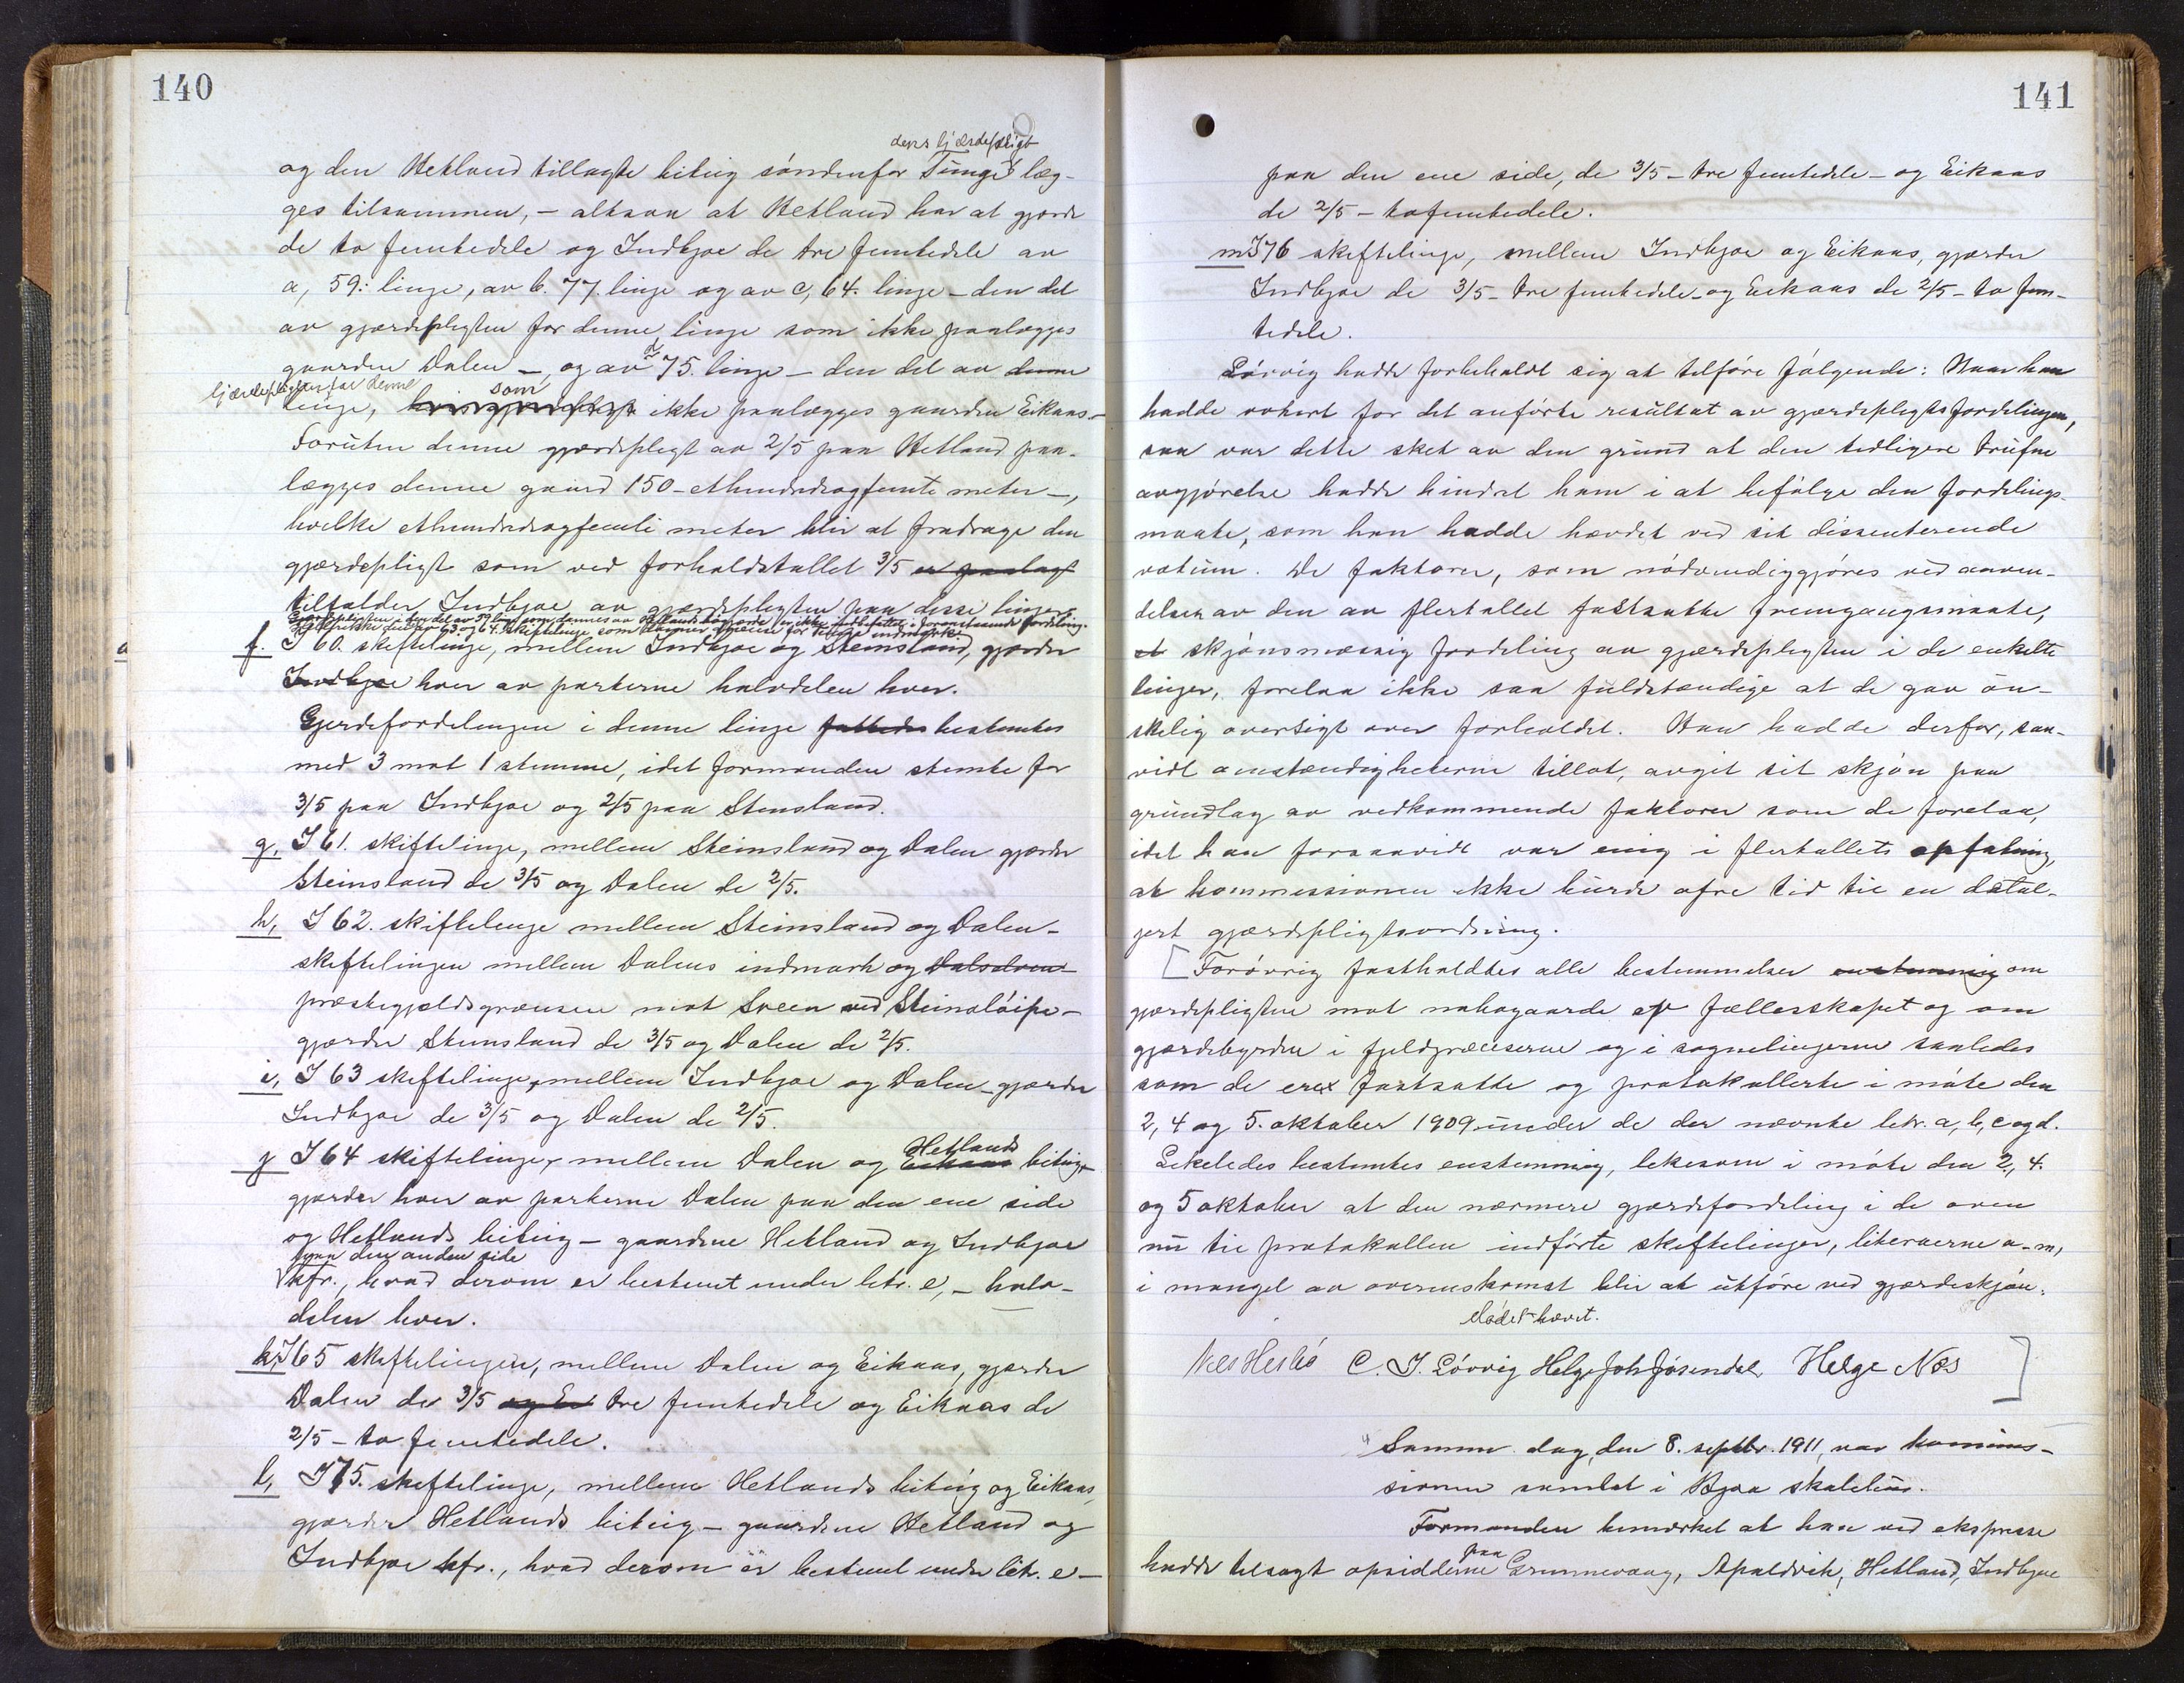 140
dens gjærdepligt
og den Hetland tillagte biteig søndenfor Tunge læg-
ges tilsammen, – altsaa at Hetland har at gjærde
de to femtedele og Indbjoe de tre femtedele av
a, 59: linje, av b. 77. linje og av c, 64. linje – den del
av gjærdepligten for denne linje som ikke paalægges
gaarden Dalen –, og av d 75. linje – den del av denne
gjærdepligten for denne som
linje, ikke paalægges gaarden Eikaas.–
Foruten denne gjærdepligt av 2/5 paa Hetland paa-
lægges denne gaard 150 – ethundredeogfemti meter –,
hvilke ethundredeogfemti meter blir at fradrage den
gjærdepligt som ved forholdstallet 3/5 er paalagt
tilfalder Indbjoe av gjærdepligten paa disse linjer.
Gjærdepligten i den del av 59 linje som dannes av Hetlands er ikke indbefattet i foranstaaende fordeling.
Heller ikke den av 63. og 64. skiftelinje som danner grænse for Tunge indmark.
f. I 60. skiftelinje, mellem Indbjoe og Steinsland, gjærder
Indbjoe hver av parterne halvdelen hver.
Gjerdefordelingen i denne linje fattedes bestemtes
med 3 mot 1 stemme, idet formanden stemte for
3/5 paa Indbjoe og 2/5 paa Stensland.
g, I 61. skiftelinje, mellem Steinsland og Dalen gjærder
Steinsland de 3/5 og Dalen de 2/5.
h, I 62. skiftelinje mellem Steinsland og Dalen –
skiftelinjen mellem Dalens indmark og Dalselven
præstegjældsgrænsen mot Sveen ved Steinsløipe –
gjærder Steinsland de 3/5 og Dalen de 2/5.
i, I 63 skiftelinje, mellem Indbjoe og Dalen – gjærder
Indbjoe de 3/5 og Dalen de 2/5.
Hetlands
j I 64 skiftelinje, mellem Dalen og Eikaas biteig,
gjærder hver av parterne Dalen paa den ene side
og Hetlands biteig – gaardene Hetland og Indbjoe
paa den anden side
kfr., hvad derom er bestemt under litr. e, – halv-
delen hver.
k, I 65 skiftelinjen, mellem Dalen og Eikaas, gjærder
Dalen de 3/5 og Ei tre femtedele og Eikaas de
2/5 – to femtedele.
l, I 75. skiftelinje, mellem Hetlands biteig og Eikaas,
gjærder Hetlands biteig – gaardene Hetland og
Indbjoe kfr., hvad derom er bestemt under litr. e –
141
paa den ene side, de 3/5 – tre femtedele – og Eikaas
de 2/5 – tofemtedele.
m I 76 skiftelinje, mellem Indbjoe og Eikaas, gjærder
Indbjoe de 3/5 – tre femtedele – og Eikaas de 2/5 – to fem-
tedele.
Løvvig hadde forbeholdt sig at tilføre følgende: Naar han
hadde votert for det anførte resultat av gjærdepligtsfordelingen,
saa var dette sket av den grund at den tidligere trufne
avgjørelse hadde hindret ham i at befølge den fordelings-
maate, som han hadde hævdet ved sit dissenterende
votum. De faktorer, som nødvendiggjøres ved anven-
delsen av den av flertallet fastsatte fremgangsmaate,
et skjønsmæssig fordeling av gjærdepligten i de enkelte
linjer, forelaa ikke saa fuldstændige at de gav øn-
skelig oversigt over forholdet. Han hadde derfor, saa-
vidt omstændigheterne tillot, avgit sit skjøn paa
grundlag av vedkommende faktorer som de forelaa,
idet han forsaavidt var enig i flertallets opfatning,
at kommissionen ikke burde ofre tid til en detal-
jert gjærdepligtsordning.
Forøvrig fastholdtes alle bestemmelser enstemmig om
gjærdepligten mot nabogaarde av fællesskapet og om
gjærdebyrden i fjeldgrænserne og i sognelinjerne saaledes
som de er fastsatte og protokollerte i møte den
2, 4 og 5. oktober 1909 under de der nævnte litr. a, b, c og d.
Likeledes bestemtes enstemmig, likesom i møte den 2, 4.
og 5 oktober at den nærmere gjærdefordeling i de oven
nu til protokollen indførte skiftelinjer, literaerne a – m,
i mangel av overenskomst blir at utføre ved gjærdeskjøn.
Mødet hævet.
Nils Hesbø C. J. Løvvig Helge Joh Jøsendal Helge Næs
Samme dag, den 8. septbr. 1911, var kommis-
sionen samlet i Bjoa skolehus.
Formanden bemerket at han ved ekspresse
paa
hadde tilsagt opsidderne Grunnevaag, Apaldvik, Hetland, Indbjoe